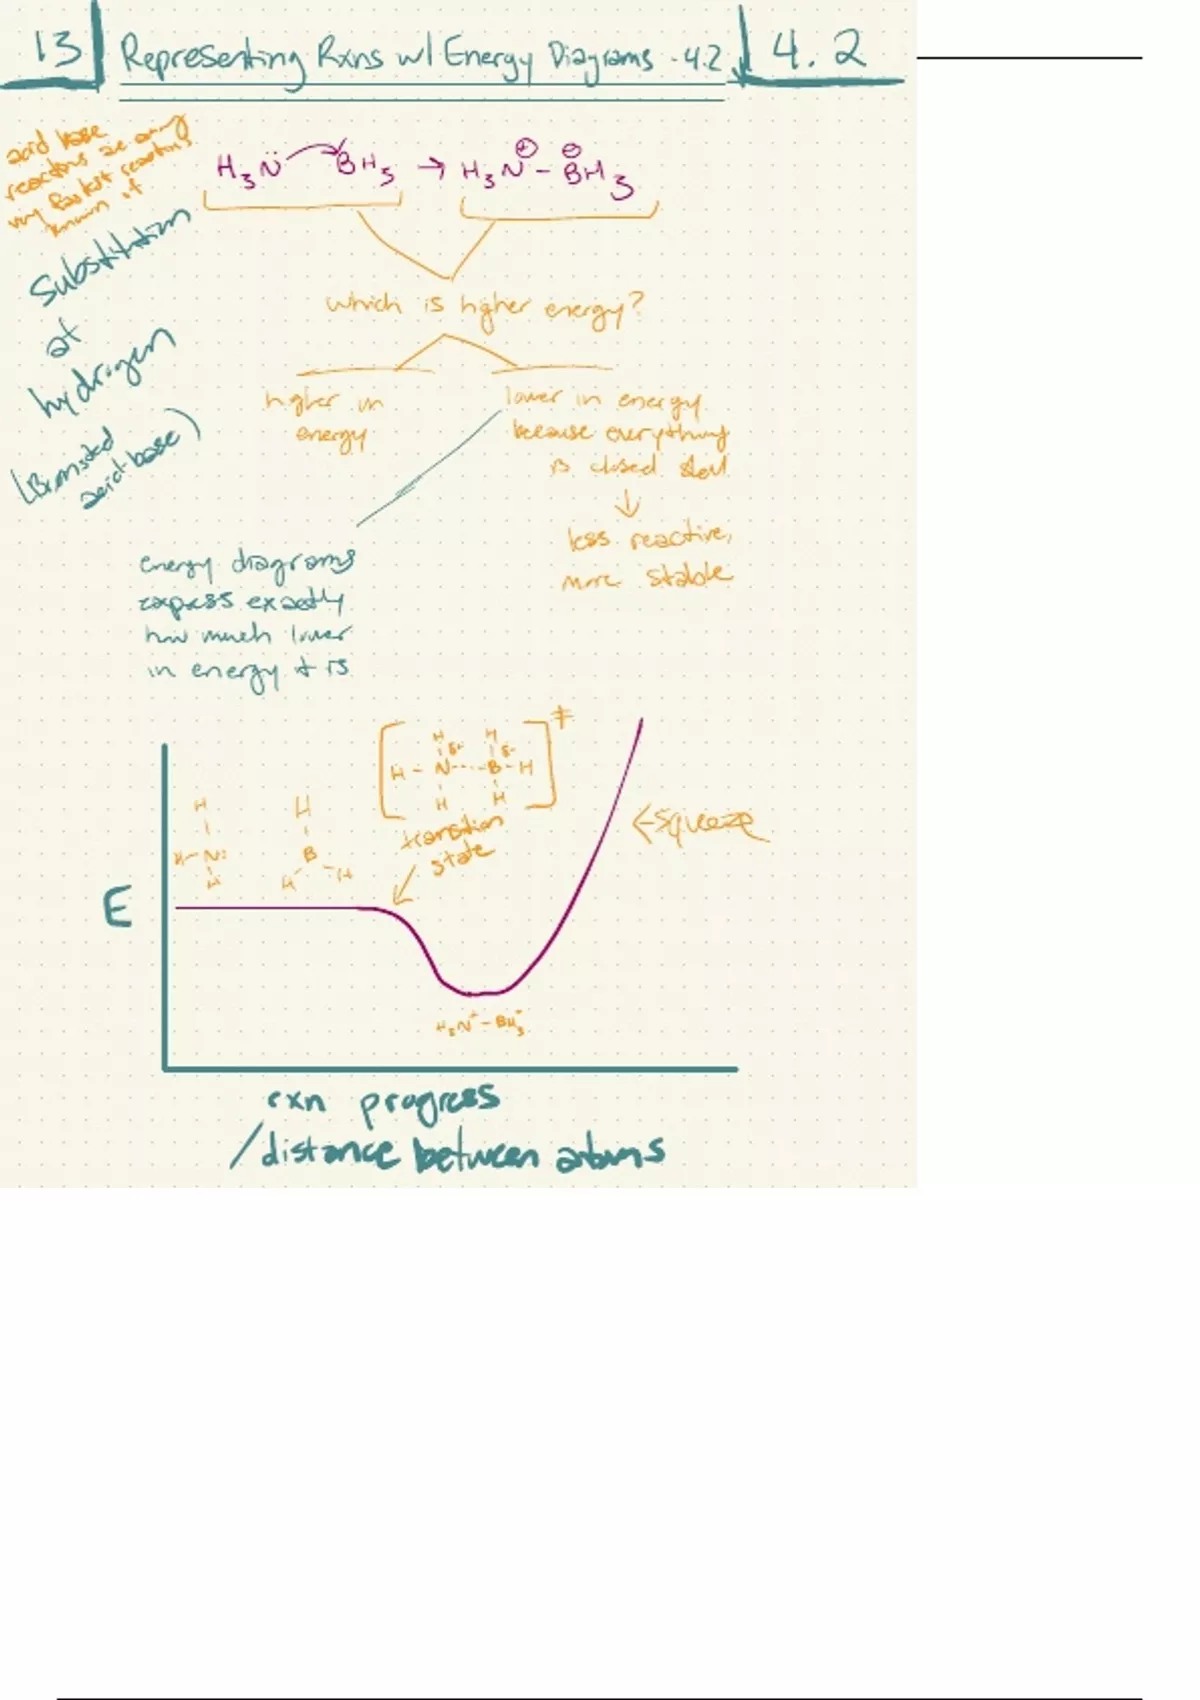 13
Representing Rxns w/ Energy Diagrams - 4.2
4.2
acid base
reactions are
reactions
known
H₃N̈ BH₃ → H₃N⊕ - BH₃⊖
Substitution
at
hydrogen
acid-base)
which is higher energy?
higher in
energy
lower in energy
because everything
is closed shell
↓
less reactive,
more stable
energy diagrams
express exactly
how much lower
in energy it is
H H
δ+ δ-
H - N ···· B - H
H H
‡
transition
state
← squeeze
H
H - N:
H
H
B
H H
E
H₃N⁺ - BH₃⁻
rxn progress
/distance between atoms